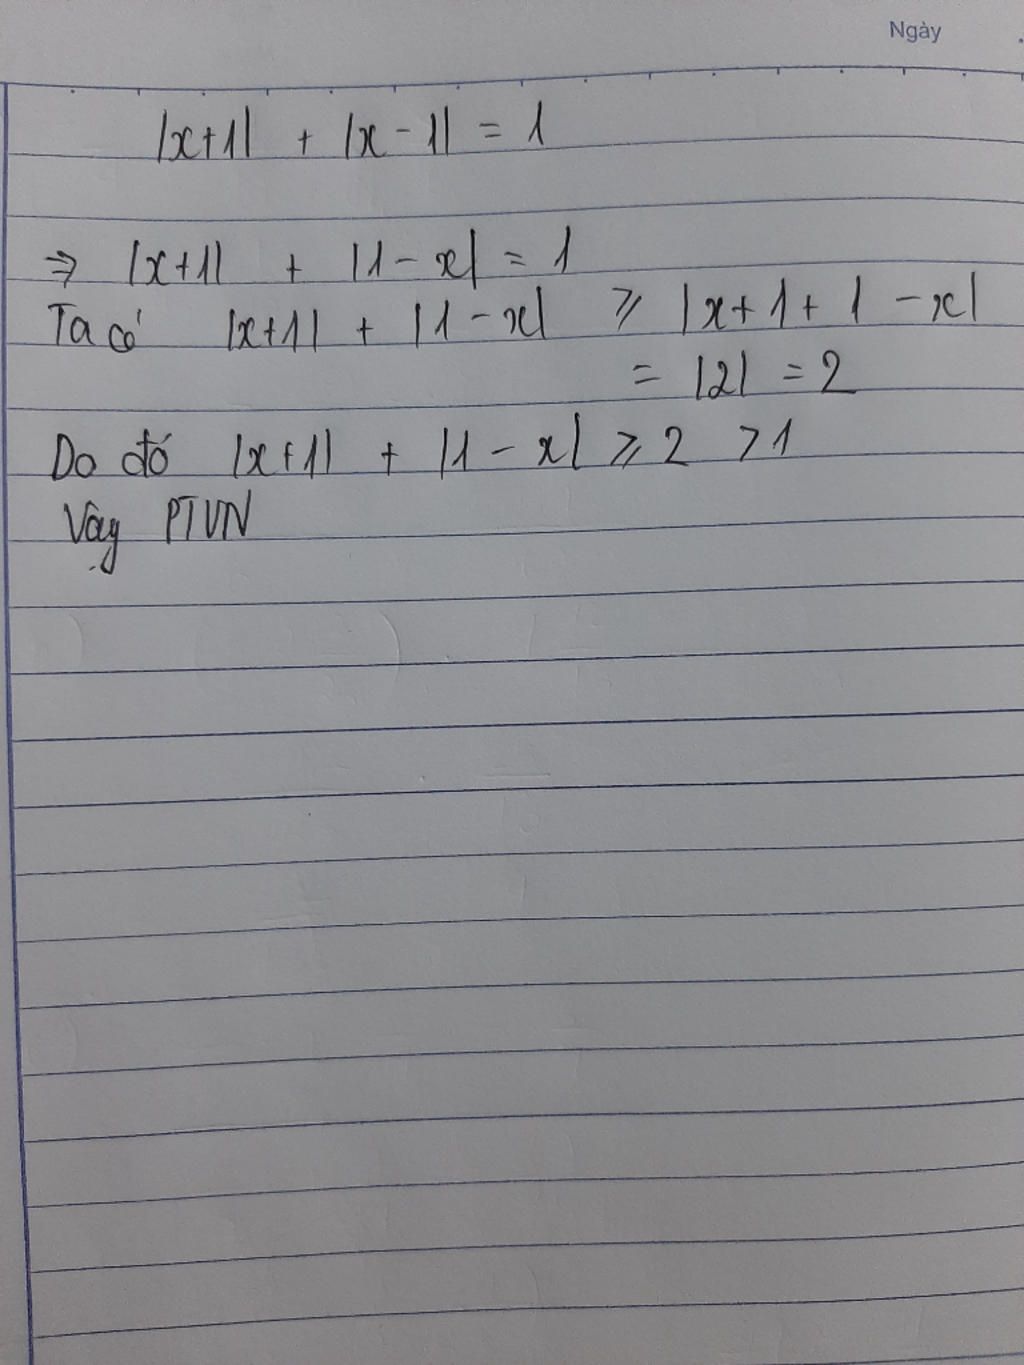 Ngày
|x+1| + |x-1| = 1
=> |x+1| + |1-x| = 1
Ta có |x+1| + |1-x| ⩾ |x+1+1-x|
= |2| = 2
Do đó |x+1| + |1-x| ⩾ 2 > 1
Vậy PTVN